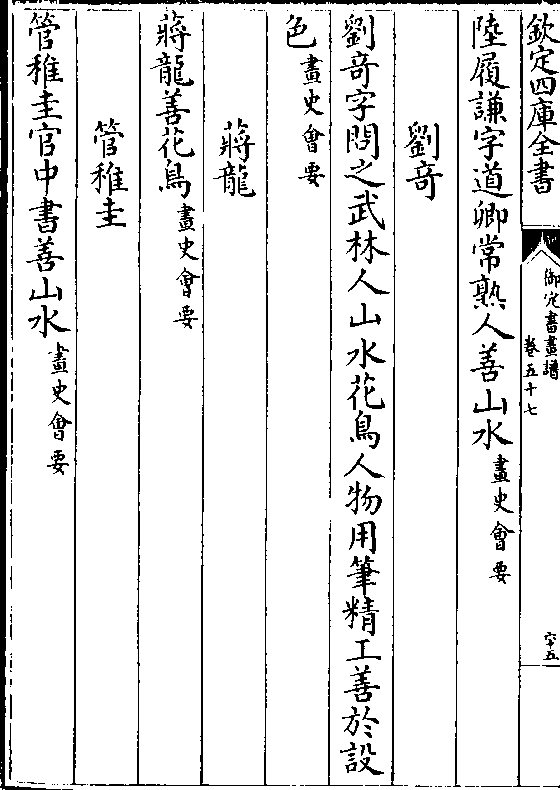 欽定四庫全書
御定書畫譜
卷五十七
六十五
陸履謙字道卿常熟人善山水畫史會要
劉竒
劉竒字問之武林人山水花鳥人物用筆精工善於設
色畫史會要
蔣龍
蔣龍善花鳥畫史會要
管稚圭
管稚圭官中書善山水畫史會要